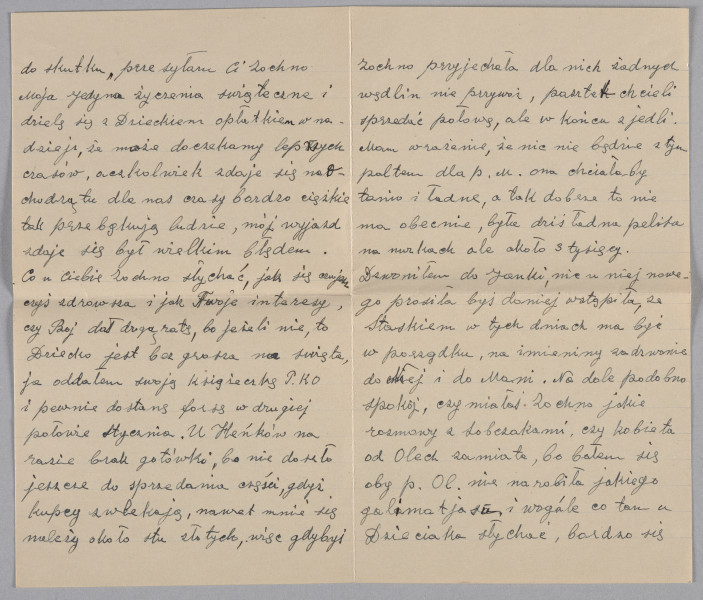 do skutku, przesyłam Ci Zochno
Moja jedyna życzenia świąteczne i
dzielę się z Dzieckiem opłatkiem w na-
dzieji, że może doczekamy lepszych
czasów, aczkolwiek zdaje się nad-
chodzą tu dla nas czasy bardzo ciężkie
tak przebąkują ludzie, mój wyjazd
zdaje się był wielkim błędem.
Co u Ciebie Zochno słychać, jak się czujesz
czyś zdrowsza i jak Twoje interesy,
czy dał drugą ratę, bo jeżeli nie, to
Dziecko jest bez grosza na święta,
ja oddałem swoją książeczkę P.K.O
i pewnie dostanę forsę w drugiej
połowie stycznia. U Heńków na
razie brak gotówki, bo nie doszło
jeszcze do sprzedania części, gdyż
kupcy zwlekają, nawet mnie się
należy około stu złotych, więc gdybyś
Zochno przyjechała dla nich żadnych
wędlin nie przywoź, pasztet chcieli
sprzedać połowę, ale w końcu zjedli.
Mam wrażenie, że nic nie będzie z tym
paltem dla p. M. ona chciała by
tanio i ładne, a tak dobrze to nie
ma obecnie, była dziś ładna pelisa
na nurkach ale około 3 tysięcy.
Dzwoniłem do Janki, nic u niej nowe-
go prosiła byś do niej wstąpiła, ze
Staśkiem w tych dniach ma być
w porządku, na imieniny zadzwonię
do niej i do Mani. Na dole podobno
spokój, czy miałaś Zochno jakie
rozmowy z Sobczakami, czy kobieta
od Olech zamiata, bo bałem się
aby p. Ol. nie narobiła jakiego
galimatjasu, i wogóle co tam u
Dzieciaka słychać, bardzo się